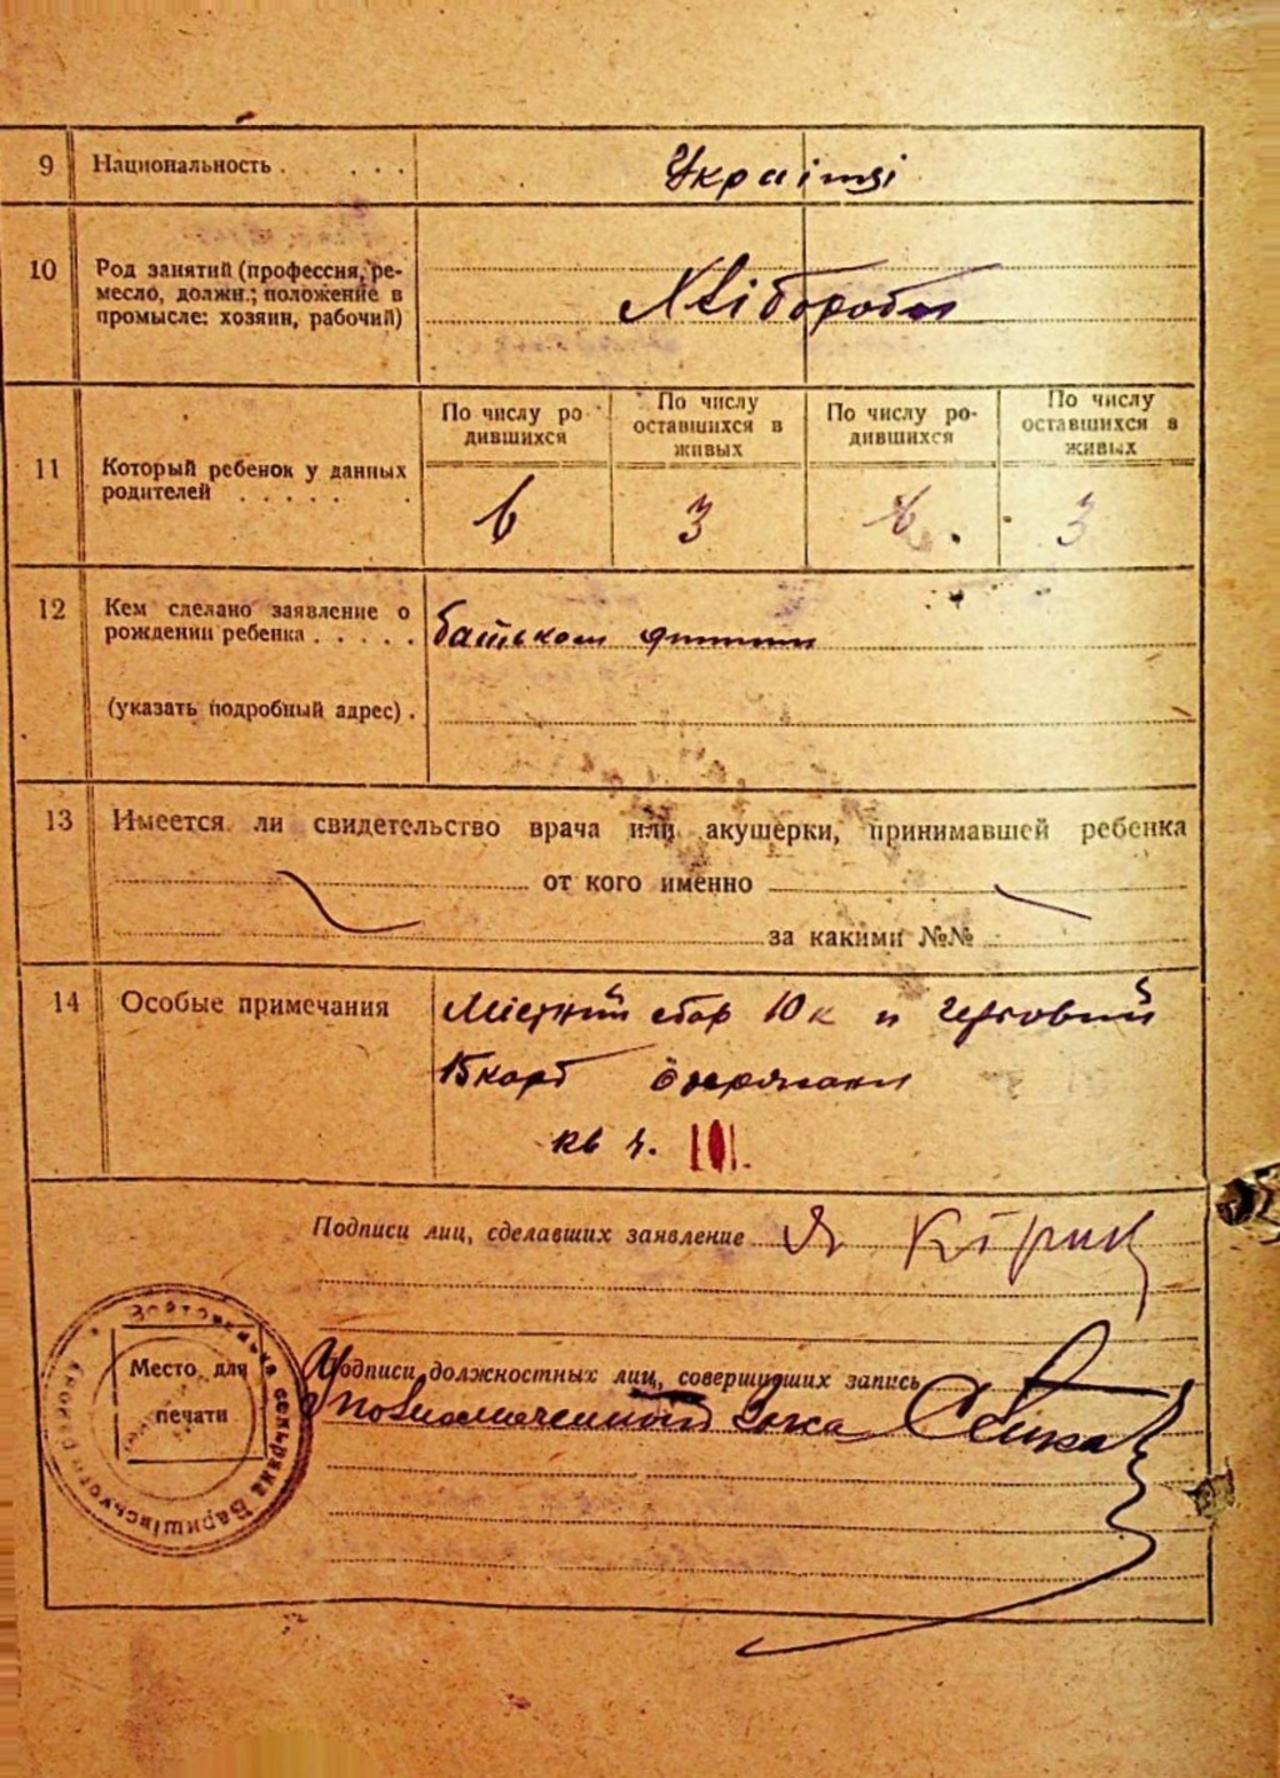 9 Национальность . . . . Українці
10 Род занятий (профессия, ре-
месло, должн.; положение в
промысле: хозяин, рабочий)
Хліборобы
11 Который ребенок у данных
родителей . . . . . .
По числу ро-
дившихся
По числу
оставшихся в
живых
По числу ро-
дившихся
По числу
оставшихся в
живых
6 3 3
12 Кем сделано заявление о
рождении ребенка . . . . . батьком дитини
(указать подробный адрес) .
13 Имеется ли свидетельство врача или акушерки, принимавшей ребенка
от кого именно
за какими №№
14 Особые примечания
Місцевий сбор 10 к и
15 кард одержани
кв ч. 101.
Подписи лиц, сделавших заявление Я Кірик
Подписи должностных лиц, совершивших запись
Уповноваженный
Место для
печати
сельрада Баришівського